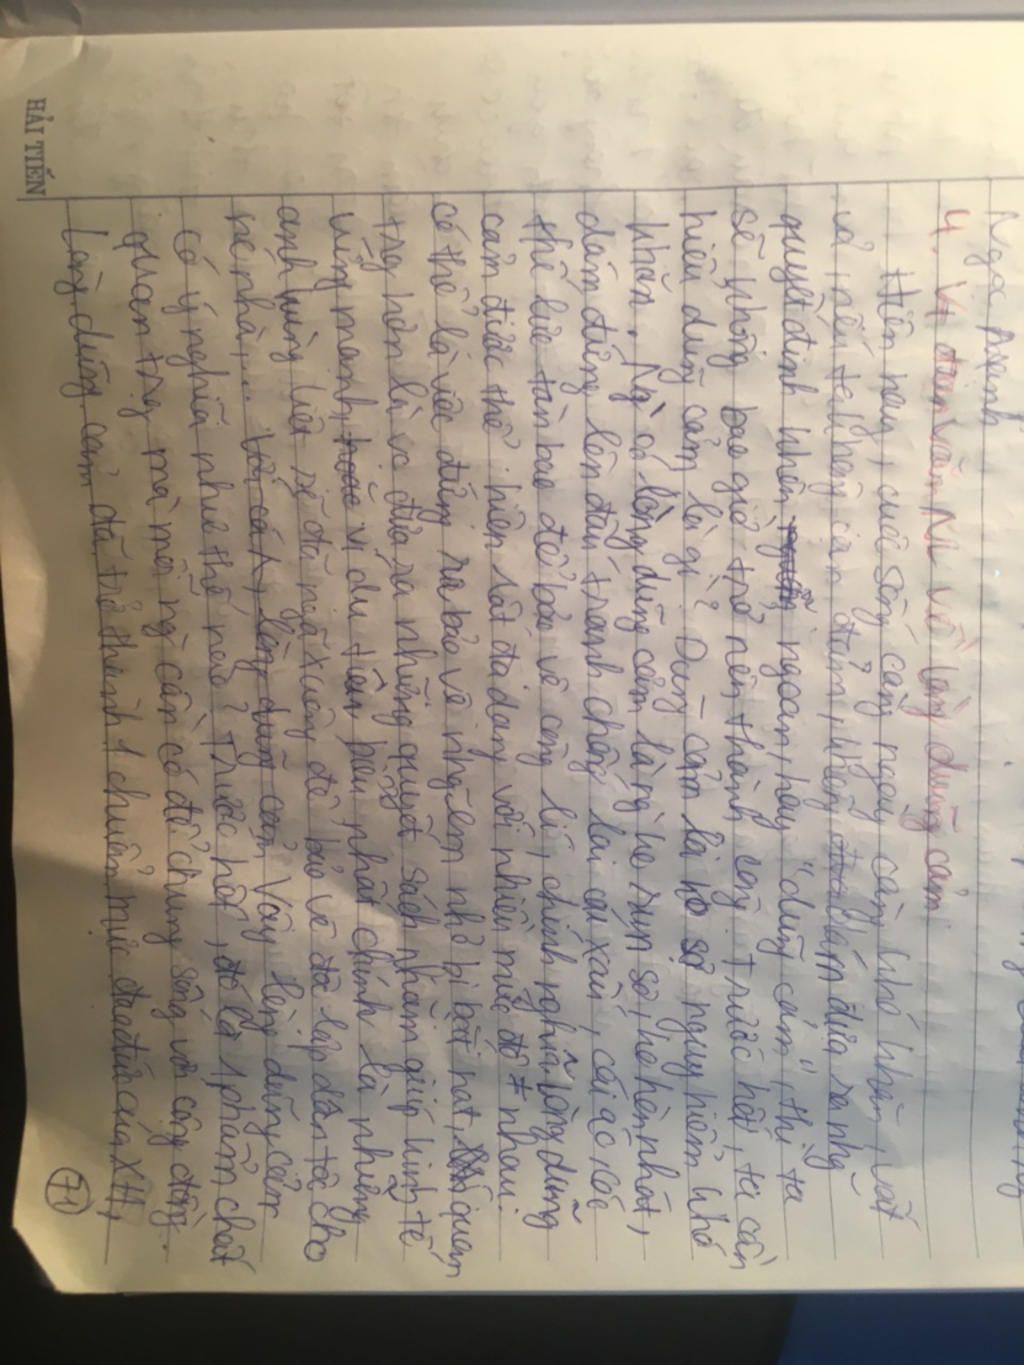 Ngọc Mạnh
4. Vt đoạn văn NL về lòng dũng cảm
Hiện nay, cuộc sống càng ngày càng khó khăn, vất
vả, nếu ta không can đảm, không dám đưa ra nhg~
quyết định khôn ngoan, hay "dũng cảm", thì ta
sẽ không bao giờ trở nên thành công. Trước hết, ta cần
hiểu dũng cảm là gì? Dũng cảm là ko sợ nguy hiểm khó
khăn. Ng` có lòng dũng cảm là ng` ko run sợ, ko hèn nhát,
dám đứng lên đấu tranh chống lại cái xấu, cái ác, các
thế lực tàn bạo để bảo vệ công lí, chính nghĩa. Lòng dũng
cảm được thể hiện rất đa dạng với nhiều mức độ ≠ nhau:
có thể là việc đứng ra bảo vệ những em nhỏ bị bắt nạt, quan
trọng hơn là vc đưa ra những quyết sách nhằm giúp kinh tế
vững mạnh, vì dụ tiêu biểu nhất chính là những
anh hùng liệt sĩ đã ngã xuống để bảo vệ độc lập dân tộc cho
nc nhà,... Vậy lòng dũng cảm
có ý nghĩa như thế nào? Trước hết, đó là 1 phẩm chất
quan trọng mà mỗi ng` cần có để chung sống với cộng đồng.
Lòng dũng cảm đã trở thành 1 chuẩn mực đạo đức của XH,
71
HẢI TIẾN